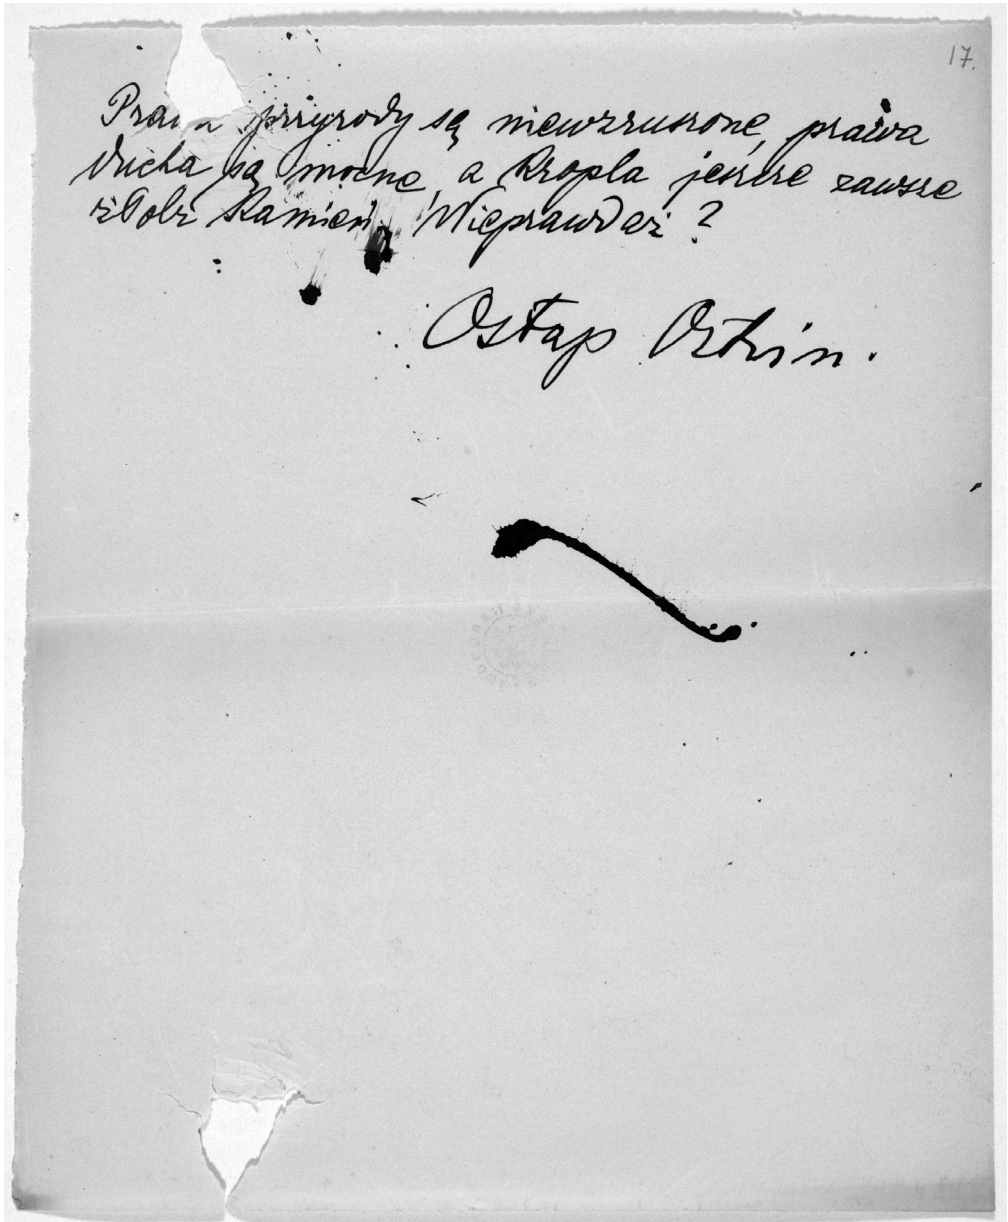 17.
Prawa przyrody są niewzruszone, prawa
ducha są mocne, a kropla jeszcze zawsze
żłobi kamień. Nieprawdaż?
Ostap Ortwin.